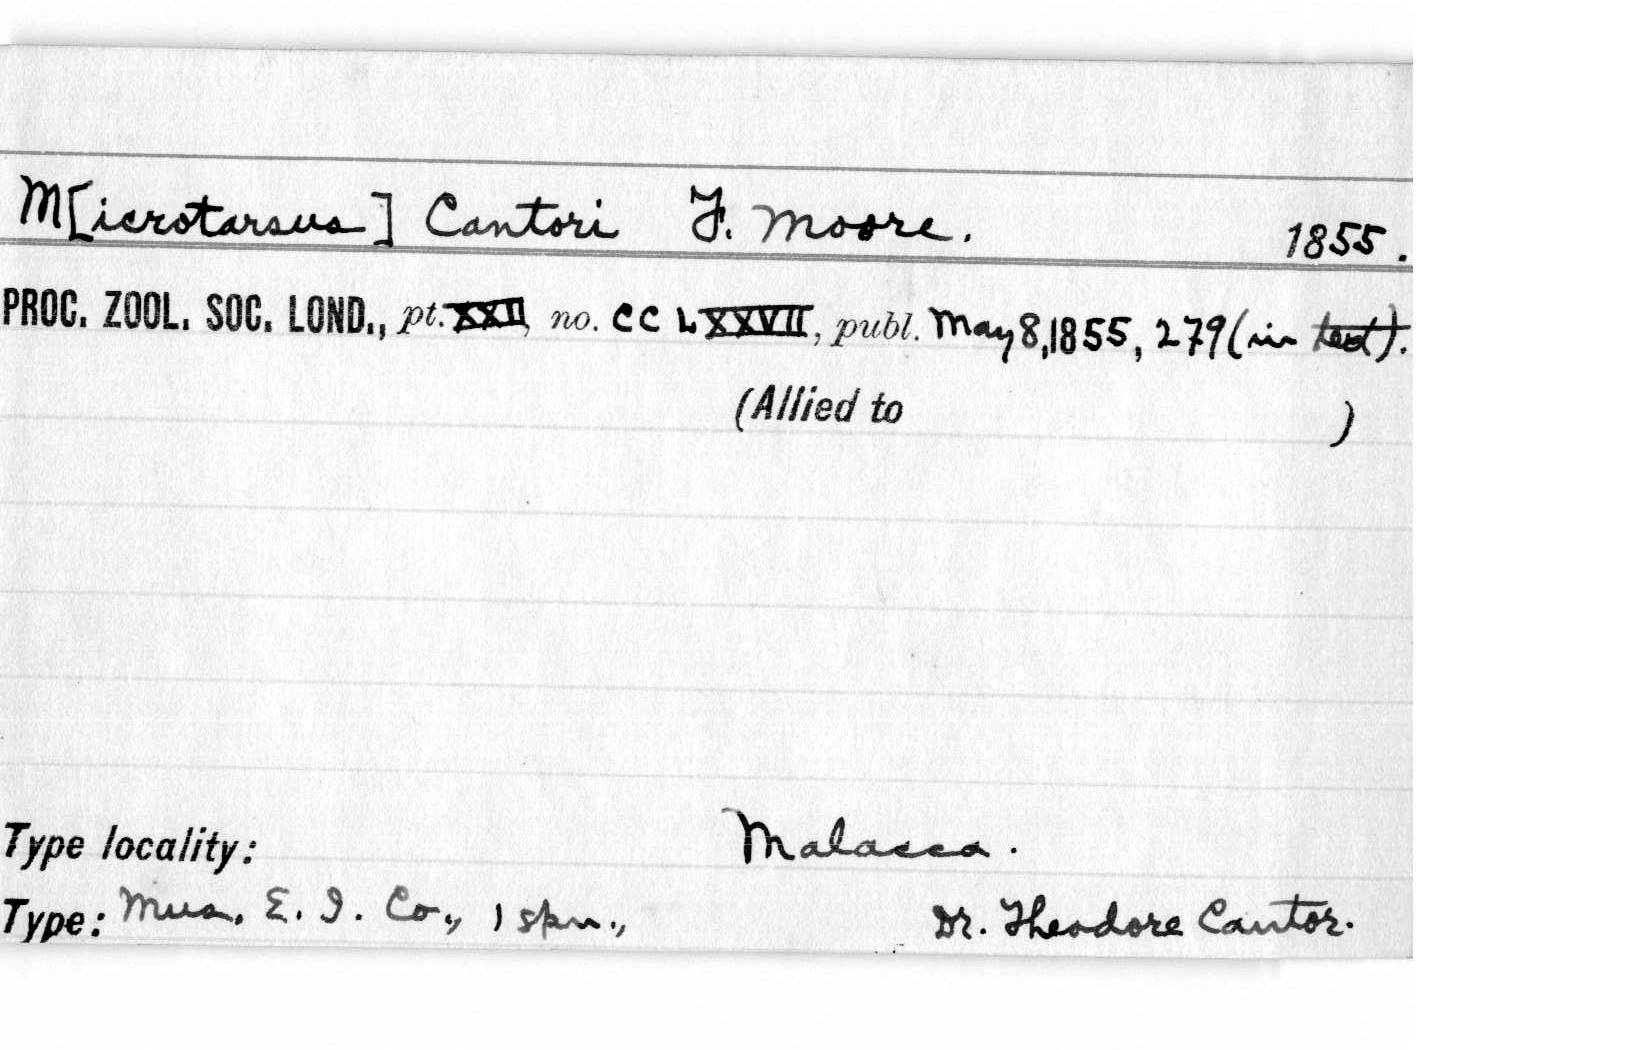 M[icrotarsus] Cantori F. Moore. 1855.
PROC. ZOOL. SOC. LOND., pt. XXII, no. CCLXXVII, publ. May 8, 1855, 279 (in text).
(Allied to )
Type locality: Malacca.
Type: Mus. E. I. Co., 1 spn., Dr. Theodore Cantor.